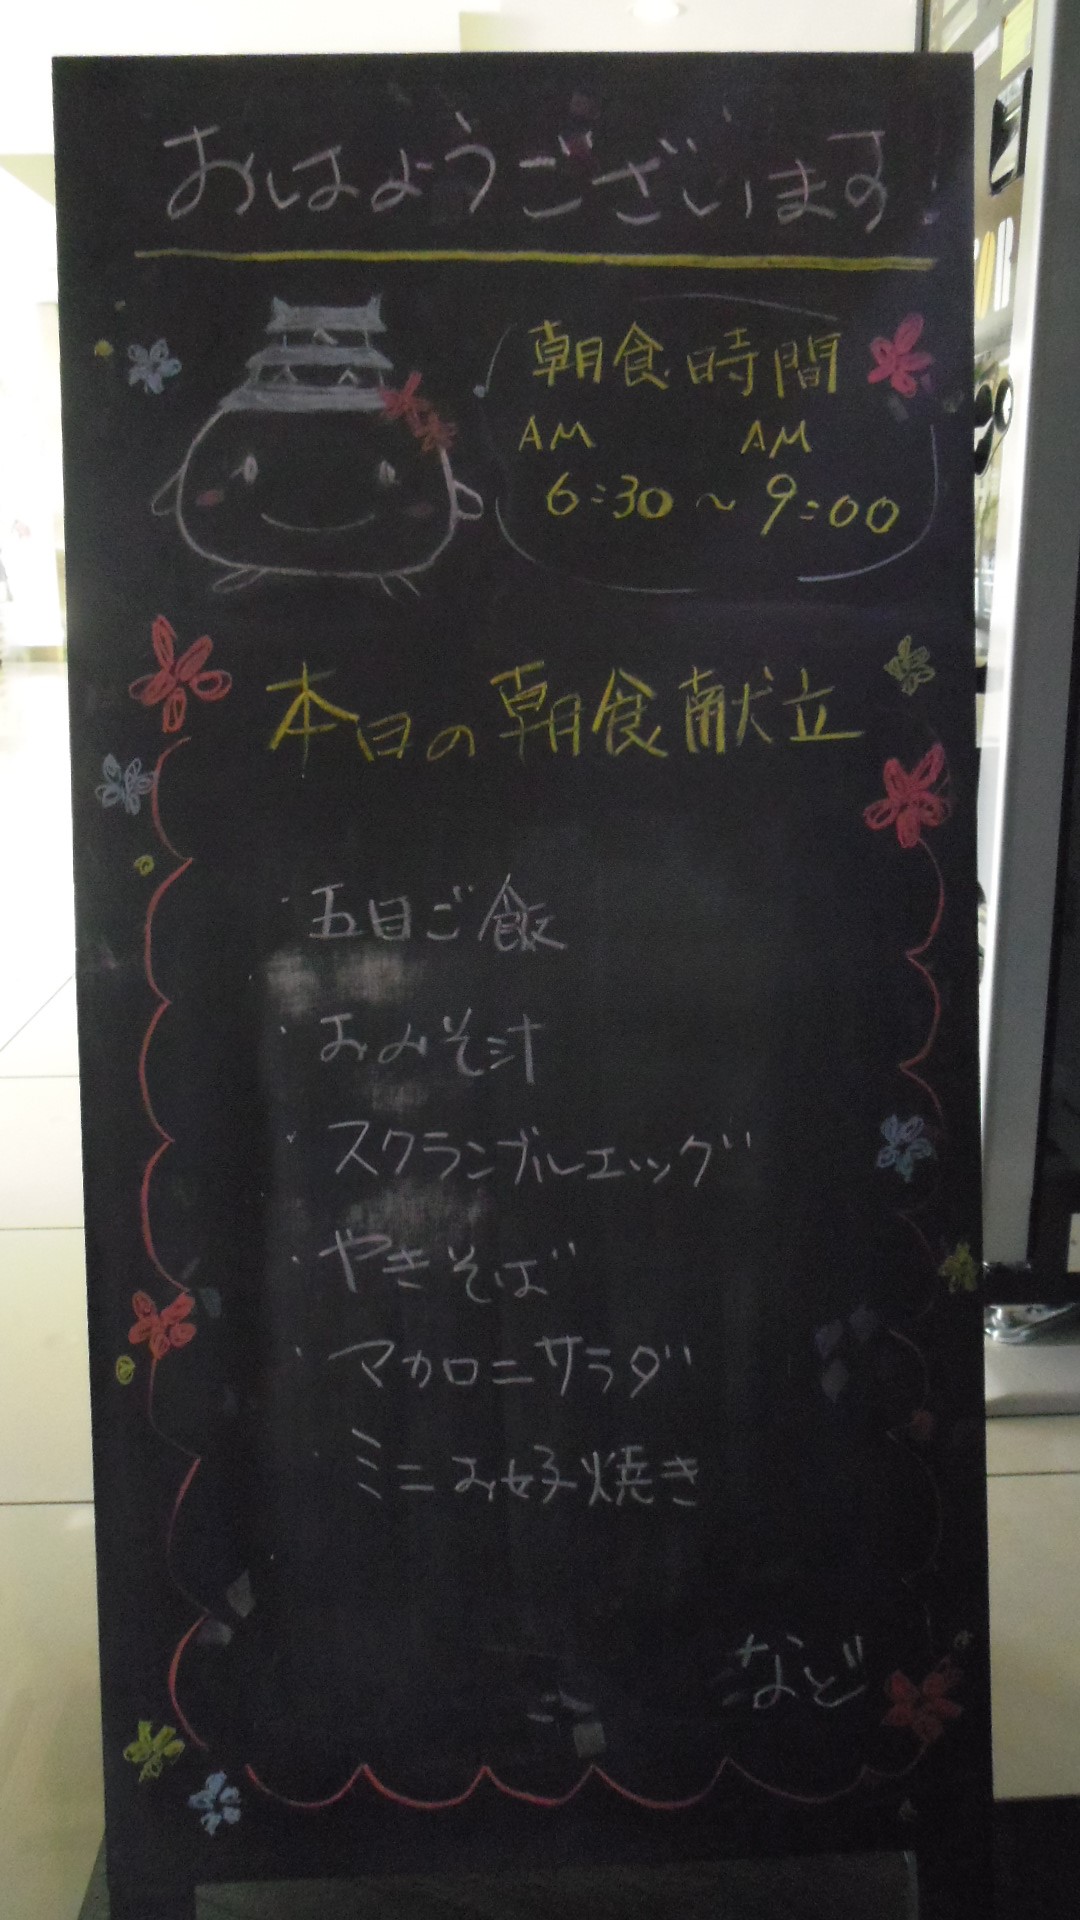 おはようございます
朝食時間
AM AM
6:30～9:00
本日の朝食献立
・五目ご飯
・おみそ汁
・スクランブルエッグ
・やきそば
・マカロニサラダ
・ミニお好焼き
など